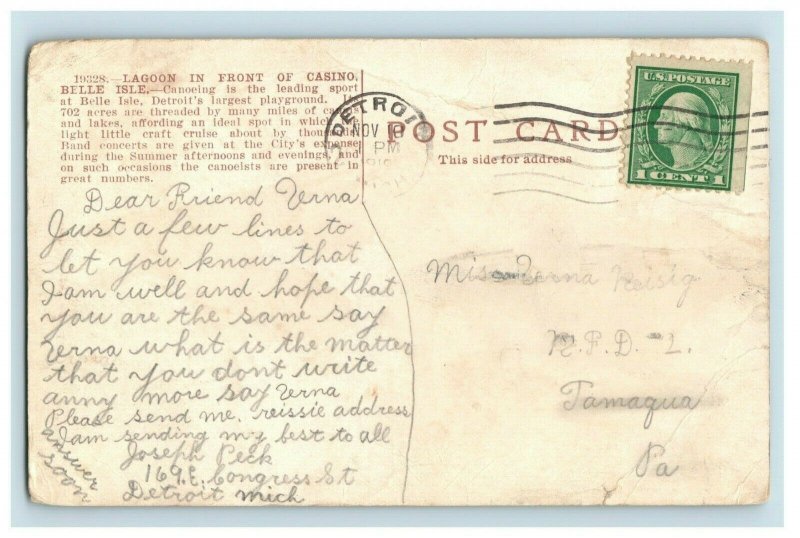 19328.—LAGOON IN FRONT OF CASINO,
BELLE ISLE.—Canoeing is the leading sport
at Belle Isle, Detroit's largest playground. Its
702 acres are threaded by many miles of canals
and lakes, affording an ideal spot in which
light little craft cruise about by thousands
Band concerts are given at the City's expense
during the Summer afternoons and evenings, and
on such occasions the canoeists are present in
great numbers.
DETROIT
NOV 10
PM
POST CARD
This side for address
U.S. POSTAGE
1 CENT 1
Dear Friend Verna
Just a few lines to
let you know that
I am well and hope that
you are the same say
Verna what is the matter
that you dont write
anny more say Verna
Please send me. reissie address
I am sending my best to all
Joseph Peck
169 E. Congress St
Detroit Mich
answer
soon
Miss Verna Reisig
R.F.D. 2.
Tamaqua
Pa